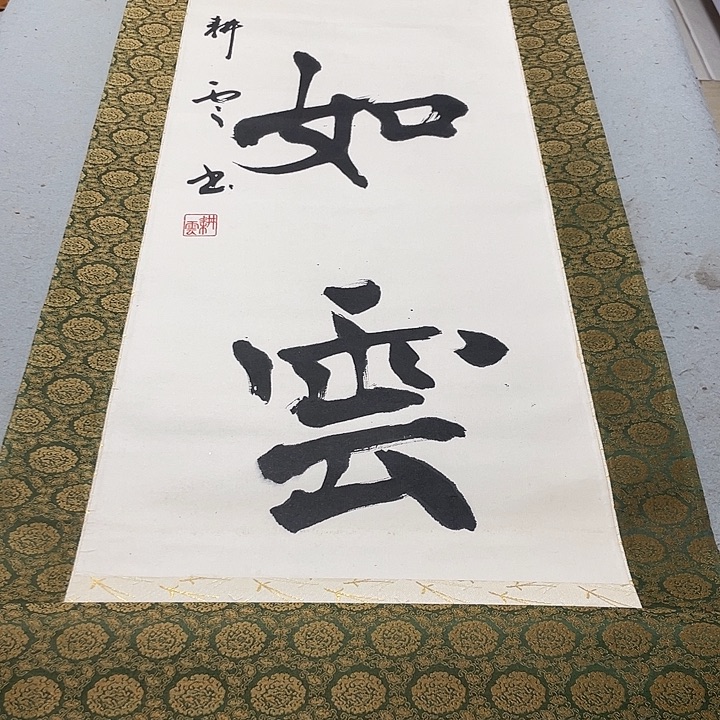 如雲
耕雲書
耕雲